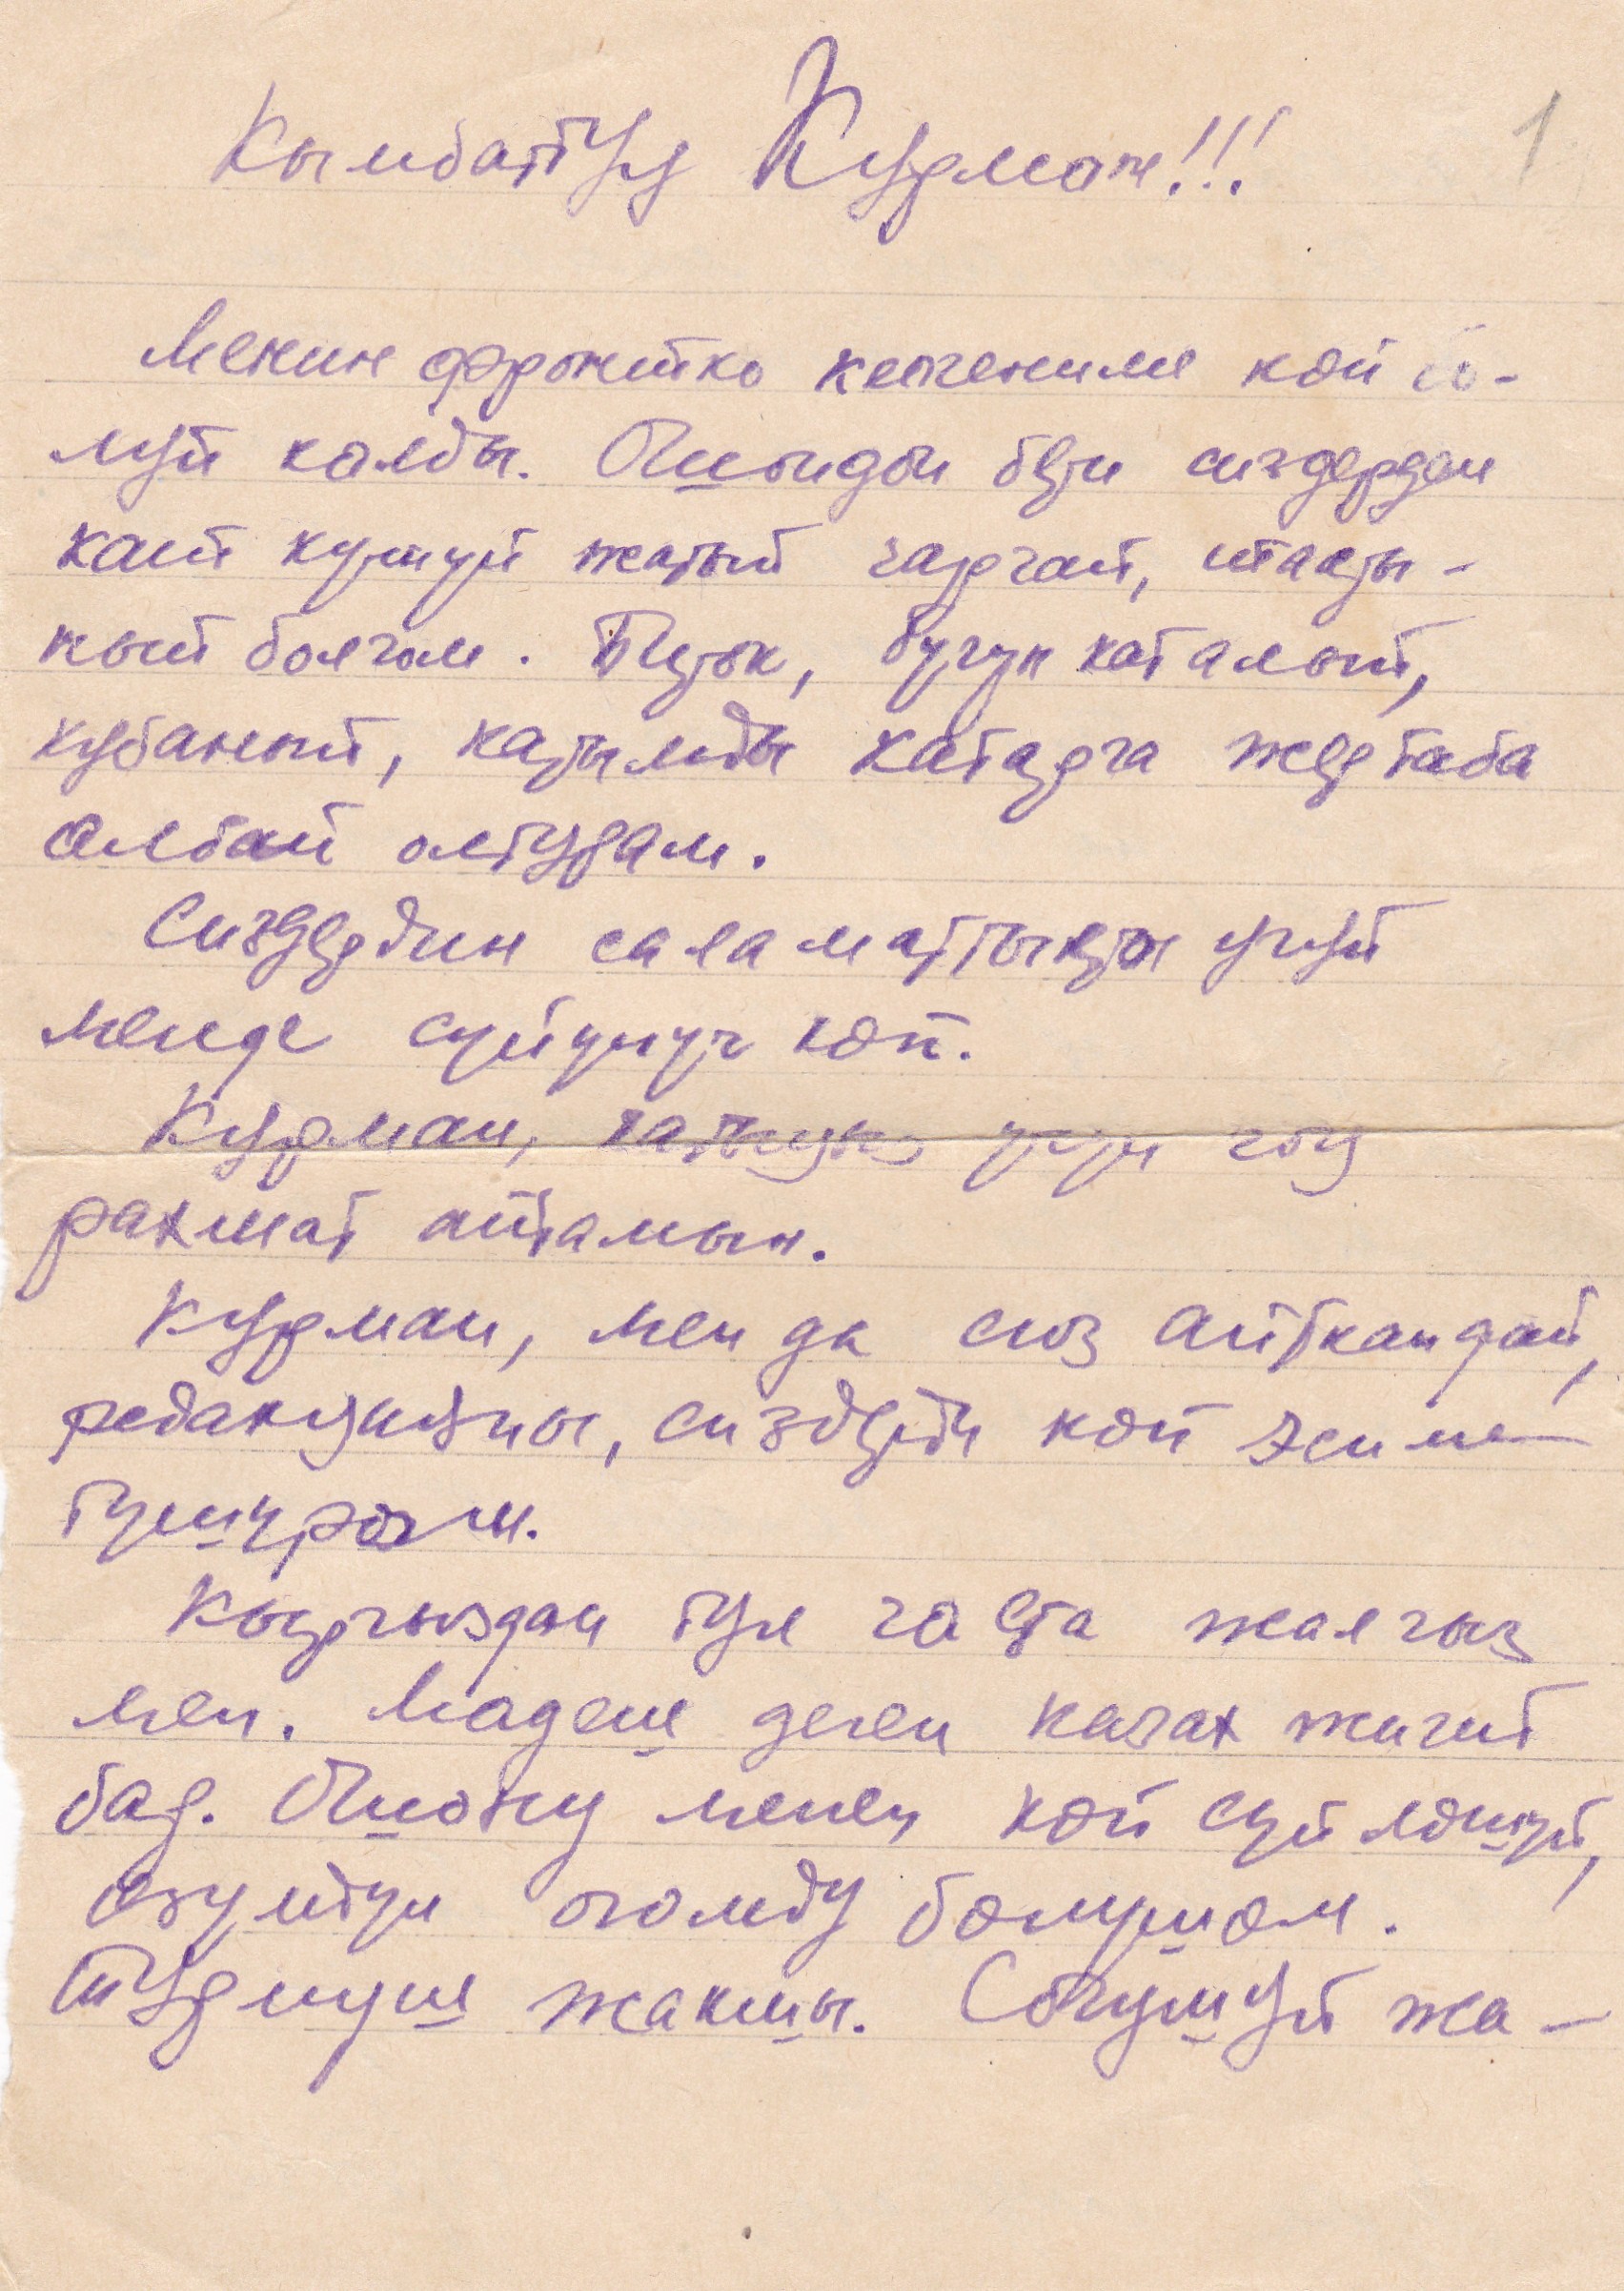 1
Кымбаттуу Курман!!!
Менин фронтко келгениме көп бо-
луп калды. Ошондон бери сиздерден
кат күтүп жатып чарчап,
болгом. Бирок, бүгүн кат алып,
кубанып, катымды катарга жер таба
албай олтурам.
Сиздердин саламаттыктан үчүн
менде сүйүнүч көп.
Курман, катыңыз үчүн чоң
рахмат айтамын.
Курман, мен да сиз айткандай,
редакцияны, сиздерди көп эсиме
түшүрөм.
Кыргыздан бул часта жалгыз
мен. Мадеш деген казак жигит
бар. Ошону менен көп сүйлөшүп,
өзүмдүн оюмду бөлүшөм.
Турмуш жакшы. Согушуп жа-